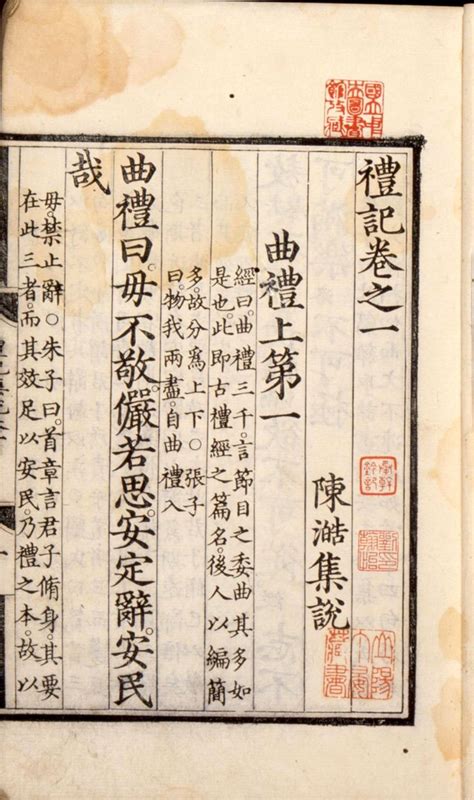 國立中
央圖書
館收藏
禮記卷之一
陳澔集說
曲禮上第一
經曰。曲禮三千。言節目之委曲其多如
是也。此即古禮經之篇名。後人以編簡
多。故分爲上下。○張子
曰。物我兩盡。自曲禮入
曲禮曰。毋不敬。儼若思。安定辭。安民
哉
毋。禁止辭○朱子曰。首章言君子脩身。其要
在此三者。而其效足以安民。乃禮之本。故以